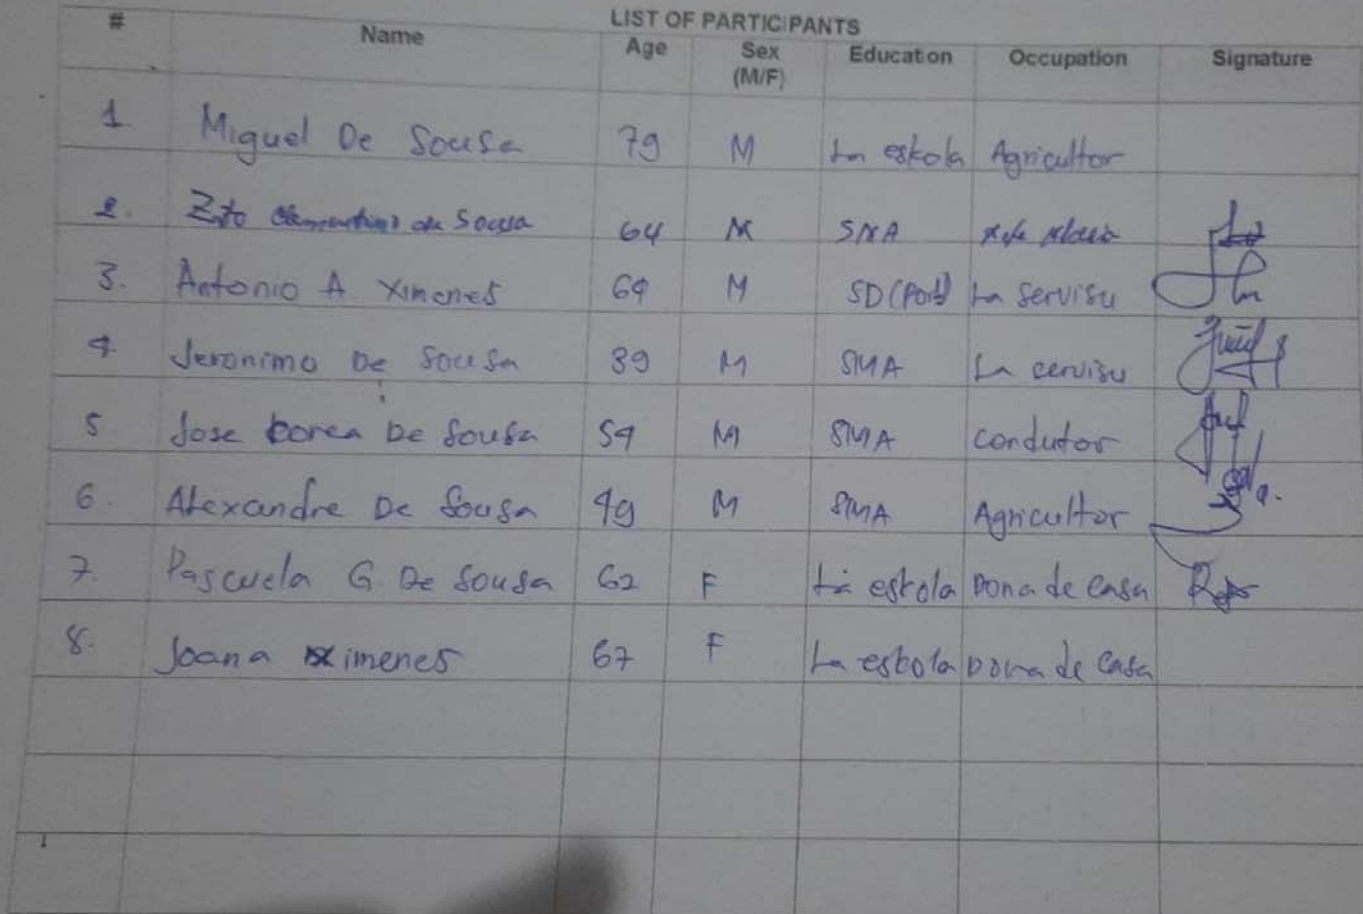 LIST OF PARTICIPANTS
# Name Age Sex (M/F) Education Occupation Signature
1 Miguel De Sousa 79 M La eskola Agricultor
2. Zito de Sousa 64 M SMA
3. Antonio A Ximenes 69 M SD (Port) La Servisu
4. Jeronimo De Sousa 39 M SMA La servisu
5 Jose De Sousa 54 M SMA condutor
6. Alexandre De Sousa 49 M SMA Agricultor
7. Pascuela G. De Sousa 62 F La eskola Dona de casa
8. Joana Ximenes 67 F La eskola Dona de Casa